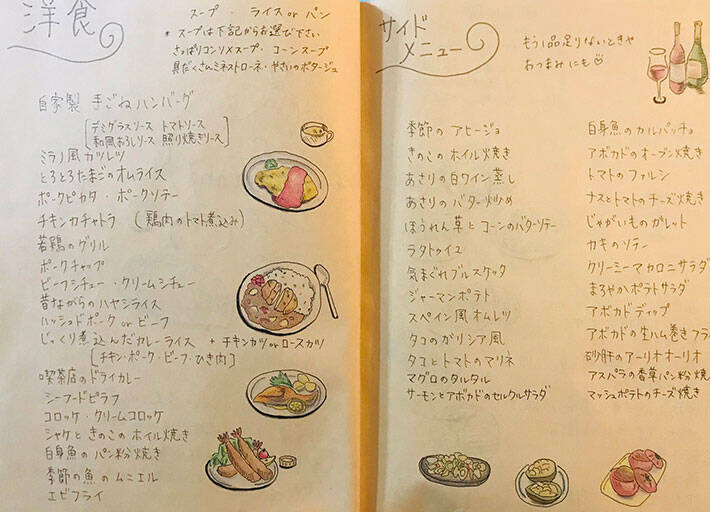 洋食
スープ ・ ライス or パン
* スープは下記からお選び下さい
さっぱりコンソメスープ・コーンスープ
具だくさんミネストローネ・やさいのポタージュ
自家製 手ごねハンバーグ
[デミグラスソース トマトソース
和風おろしソース 照り焼きソース]
ミラノ風カツレツ
とろとろたまごのオムライス
ポークピカタ・ポークソテー
チキンカチャトラ (鶏肉のトマト煮込み)
若鶏のグリル
ポークチャップ
ビーフシチュー・クリームシチュー
昔ながらのハヤシライス
ハッシュドポーク or ビーフ
じっくり煮込んだカレーライス + チキンカツ or ロースカツ
[チキン・ポーク・ビーフ・ひき肉]
喫茶店のドライカレー
シーフードピラフ
コロッケ・クリームコロッケ
シャケときのこのホイル焼き
白身魚のパン粉焼き
季節の魚のムニエル
エビフライ
サイド
メニュー
もう1品足りないときや
おつまみにも♡
季節のアヒージョ
きのこのホイル焼き
あさりの白ワイン蒸し
あさりのバター炒め
ほうれん草とコーンのバターソテー
ラタトゥイユ
気まぐれブルスケッタ
ジャーマンポテト
スペイン風オムレツ
タコのガリシア風
タコとトマトのマリネ
マグロのタルタル
サーモンとアボカドのセルクルサラダ
白身魚のカルパッチョ
アボカドのオーブン焼き
トマトのファルシ
ナスとトマトのチーズ焼き
じゃがいものガレット
カキのソテー
クリーミーマカロニサラダ
まろやかポテトサラダ
アボカドディップ
アボカドの生ハム巻きフラ
砂肝のアーリオオーリオ
アスパラの香草パン粉焼
マッシュポテトのチーズ焼き